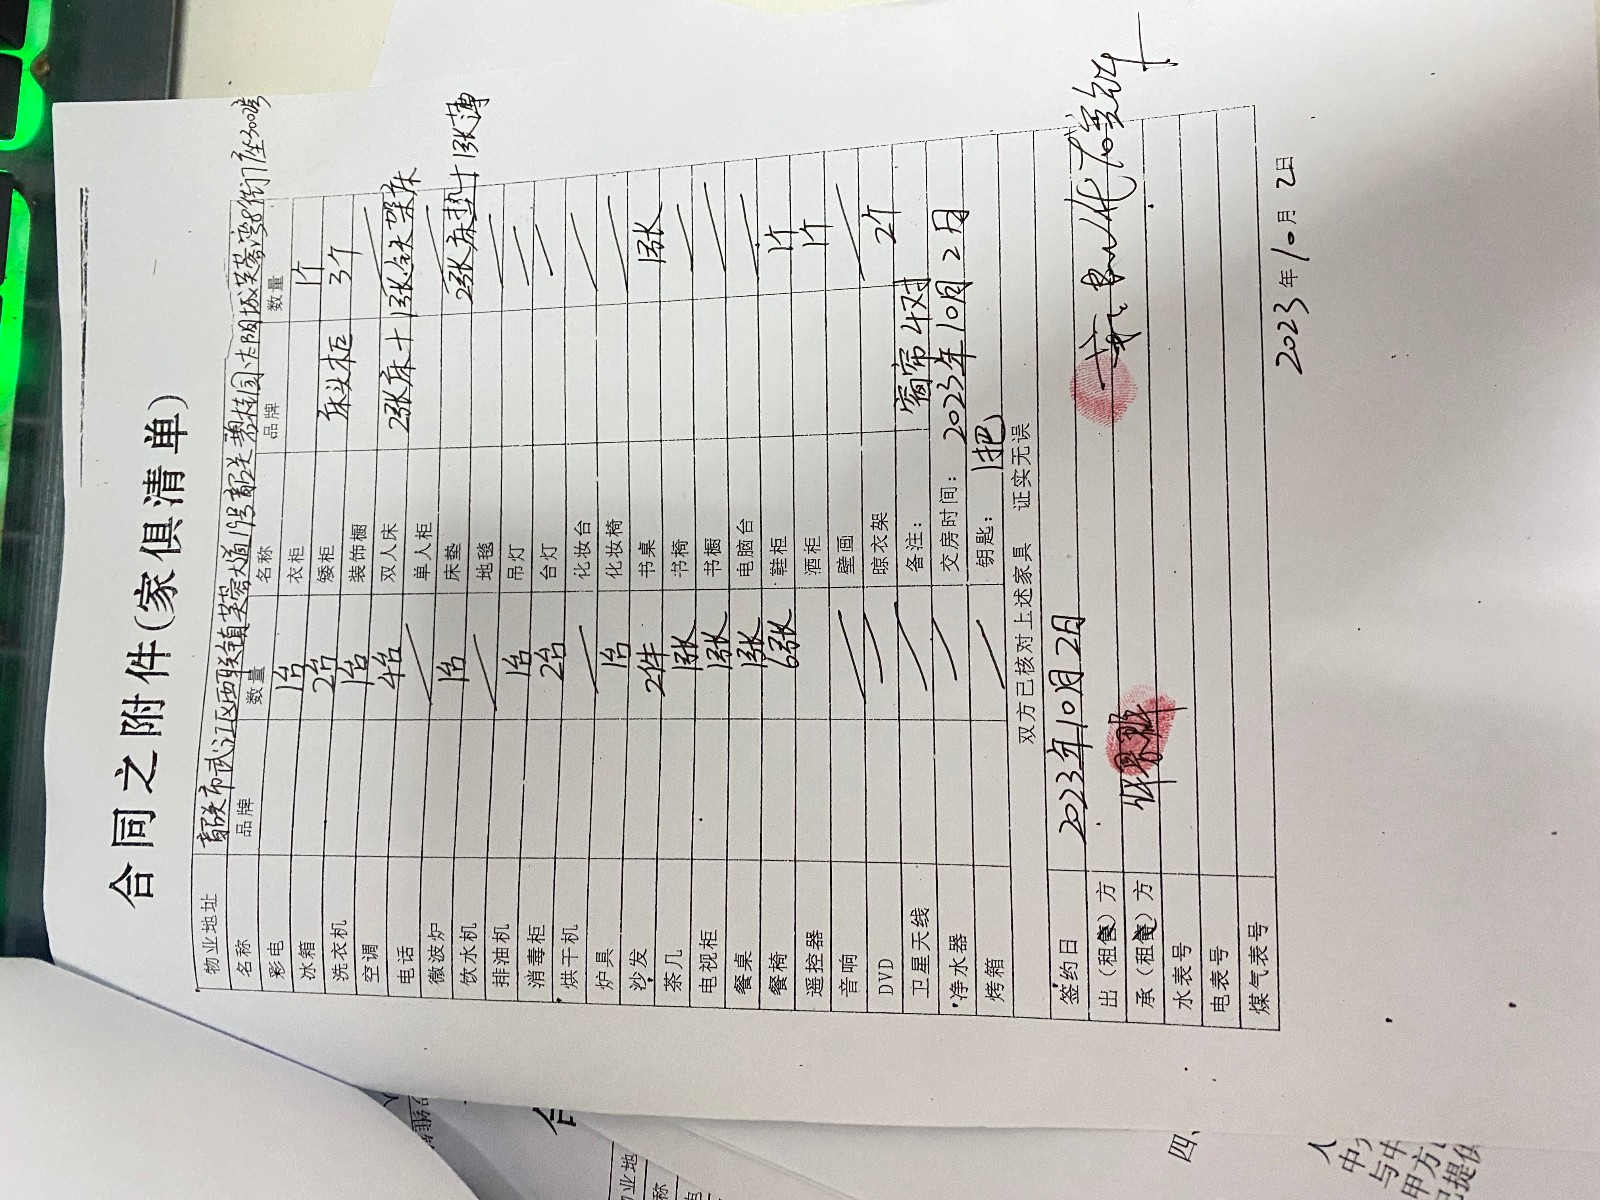 合同之附件(家俱清单)
物业地址 韶关市武江区西联镇芙蓉大道19号韶关碧桂园·太阳城芙蓉湾8街 座300号
名称 品牌 数量 名称 品牌 数量
彩电 1台 衣柜 1个
冰箱 2台 矮柜 床头柜 3个
洗衣机 1台 装饰橱
空调 4台 双人床 2张床十1张铁架床
电话 单人柜
微波炉 1台 床垫 2张床垫十1张薄
饮水机 地毯
排油机 1台 吊灯
消毒柜 2台 台灯
烘干机 化妆台
炉具 1台 化妆椅
沙发 2件 书桌 1张
茶几 1张 书椅
电视柜 1张 书橱
餐桌 1张 电脑台
餐椅 6张 鞋柜 1个
遥控器 酒柜 1个
音响 壁画
DVD 晾衣架 2个
卫星天线 备注: 窗帘4对
净水器 交房时间: 2023年10月2日
烤箱 钥匙: 1把
双方已核对上述家具 证实无误
签约日 2023年10月2日
出(租)方
承(租)方
水表号
电表号
煤气表号
2023年10月2日
合
业地
称
电
四、
人
中
与中
甲方
提供